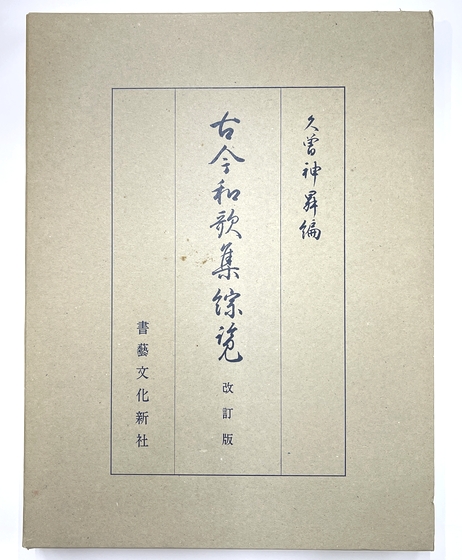 久曽神昇編
古今和歌集綜覽
改訂版
書藝文化新社